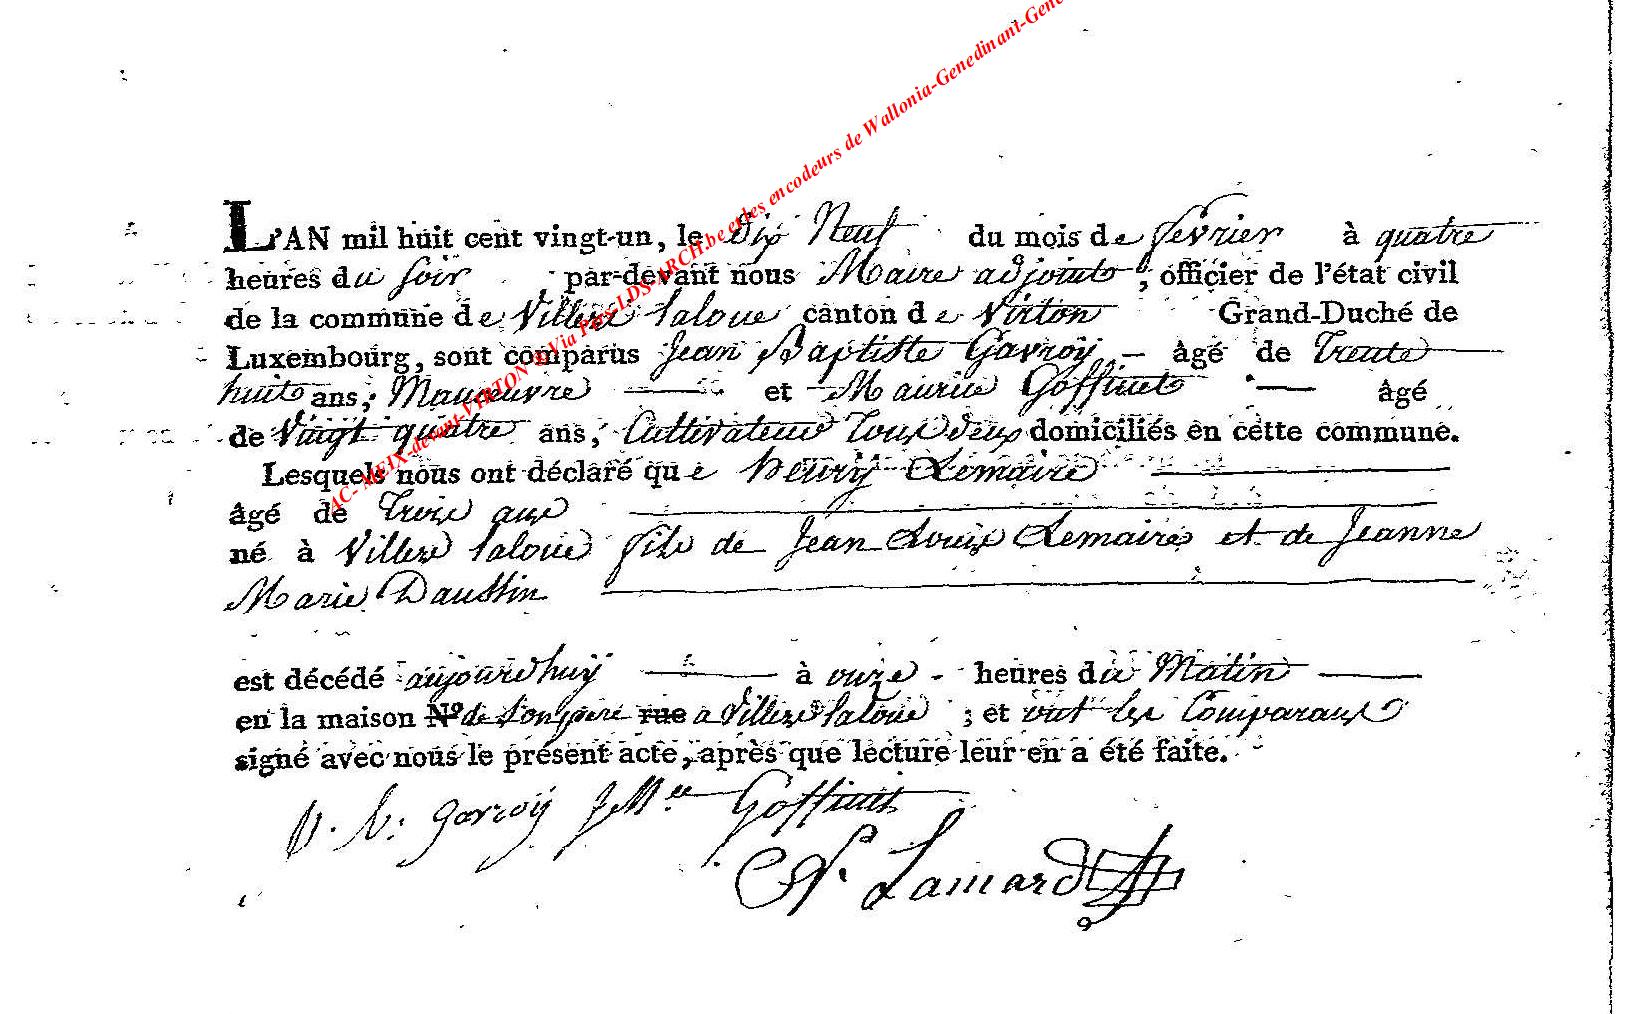 L'AN mil huit cent vingt-un, le Dix Neuf du mois de fevrier à quatre
heures du soir, par-devant nous Maire adjoint, officier de l'état civil
de la commune de Villers laloue canton de Virton Grand-Duché de
Luxembourg, sont comparus Jean Baptiste Gavroÿ âgé de Trente
huit ans, Manœuvre et Maurice Goffinet âgé
de Vingt quatre ans, Cultivateur Tous deux domiciliés en cette commune.
Lesquels nous ont déclaré que henrÿ Lemaire
âgé de Trois ans
né à Villers laloue fils de Jean Louis Lemaire et de Jeanne
Marie Daussin
est décédé aujourdhuÿ à onze heures du Matin
en la maison N.º de Sonpere rue a Villers laloue ; et ont les Comparans
signé avec nous le présent acte, après que lecture leur en a été faite.
gavroÿ Goffinet
Lamard
AC- MEIX-devant-VIRTON Via Pays-LDS-ARCH.be et les encodeurs de Wallonia-Genedinant-Gene